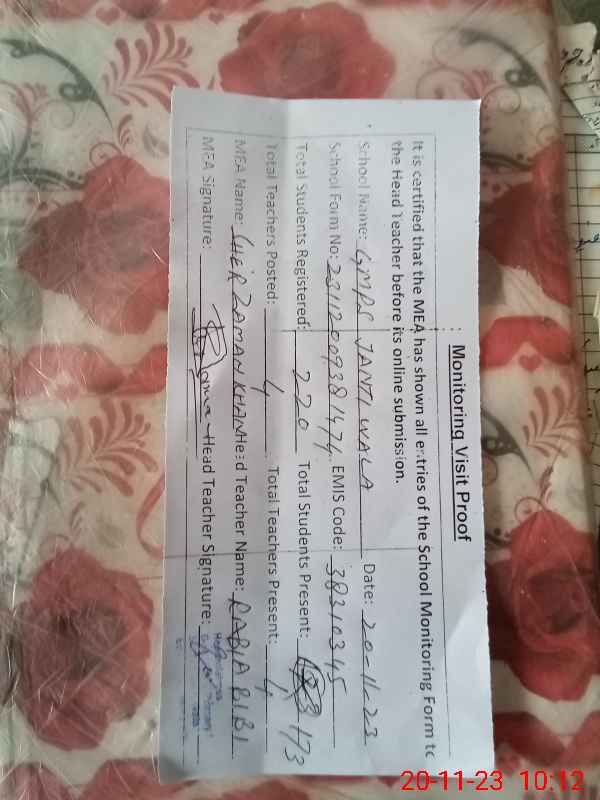 Monitoring Visit Proof
It is certified that the MEA has shown all entries of the School Monitoring Form to
the Head Teacher before its online submission.
School Name: GMPS JANTI WALA Date: 20-11-23
School Form No: 23112009381474 EMIS Code: 38310345
Total Students Registered: 220 Total Students Present: 173
Total Teachers Posted: 4 Total Teachers Present: 4
MEA Name: SHER ZAMAN KHAN Head Teacher Name: RABIA BIBI
MEA Signature: Head Teacher Signature:
20-11-23 10:12